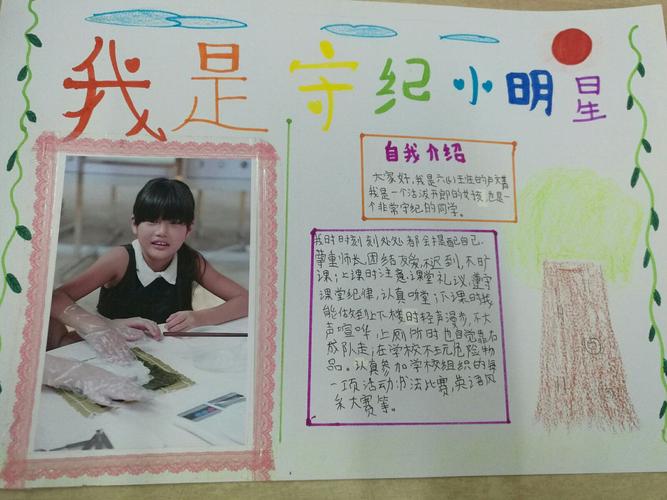 我是守纪小明星
自我介绍
大家好,我是六(4)班的卢文
我是一个活泼开朗的女孩,也是一
个非常守纪的同学。
我时时刻刻处处都会提配自己.
尊重师长,团结友爱,不迟到,不旷
课;上课时注意课堂礼议,遵守
课堂纪律,认真听堂;下课的我
能做到上下楼时轻声漫步,不大
声喧哗,上厕所时也自觉靠右
成队走;在学校不玩危险物
品。认真参加学校组织的每
一项活动:书法比赛,英语风
采大赛等。